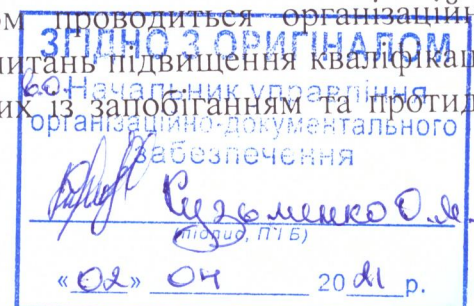 ом проводиться організаційн
ЗГІДНО З ОРИГІНАЛОМ
питань підвищення кваліфікац
в.о. Начальник управління
их із запобіганням та протид
організаційно-документального
забезпечення
Кузьменко О.М.
(підпис, П І Б)
«02» 04 2021 р.